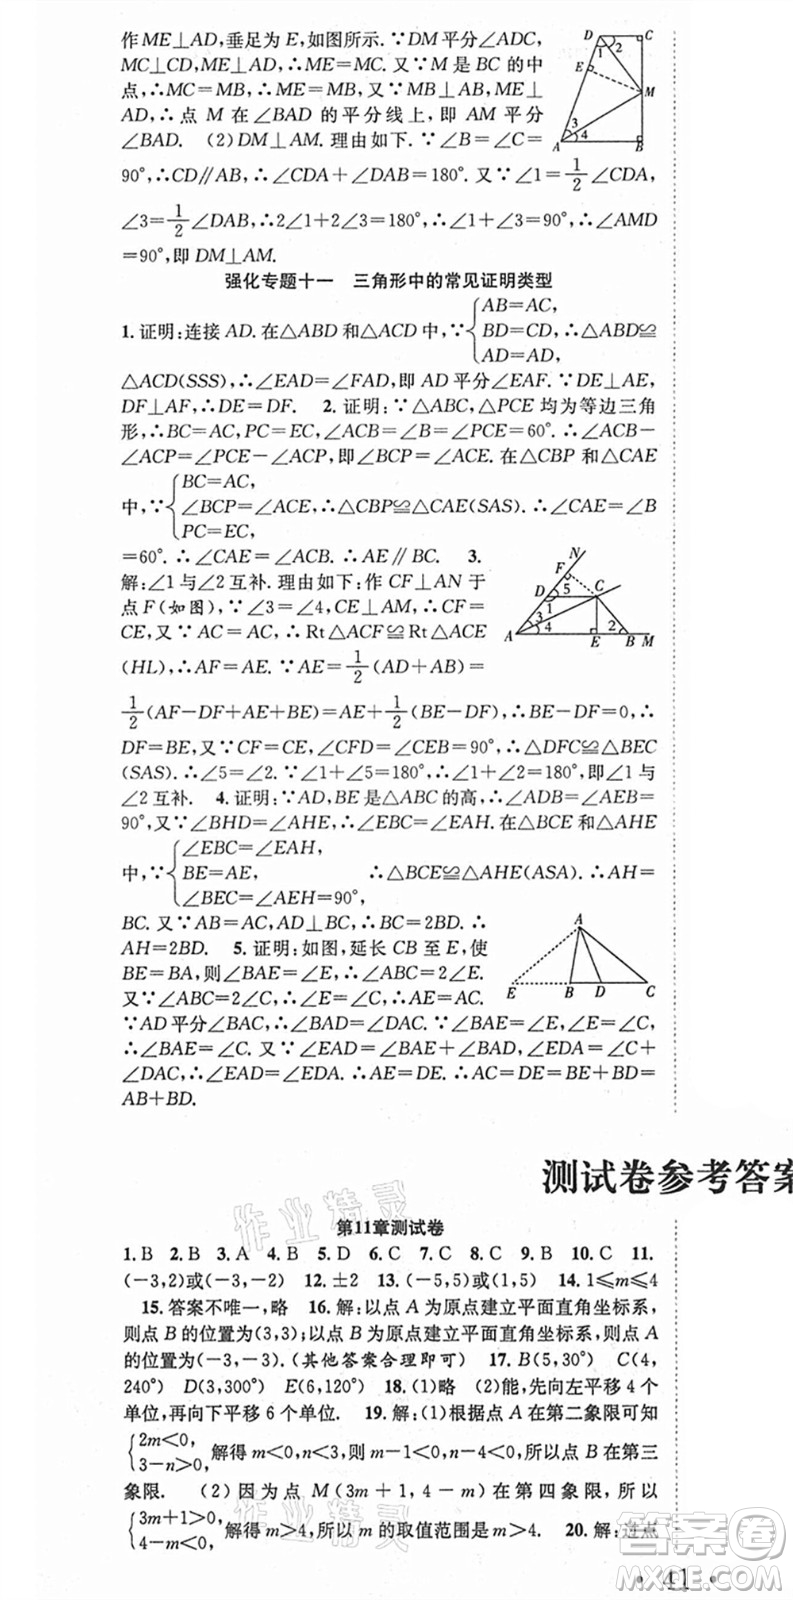 作ME⊥AD,垂足为E,如图所示.∵DM平分∠ADC,
MC⊥CD,ME⊥AD,∴ME=MC.又∵M是BC的中
点,∴MC=MB,∴ME=MB,又∵MB⊥AB,ME⊥
AD,∴点M在∠BAD的平分线上,即AM平分
∠BAD. (2)DM⊥AM.理由如下.∵∠B=∠C=
90°,∴CD∥AB,∴∠CDA+∠DAB=180°.又∵∠1=1/2∠CDA,
∠3=1/2∠DAB,∴2∠1+2∠3=180°,∴∠1+∠3=90°,∴∠AMD
=90°,即DM⊥AM.
D 1 2 C E M 3 4 A B
强化专题十一 三角形中的常见证明类型
1.证明:连接AD.在△ABD和△ACD中,∵{AB=AC, BD=CD, AD=AD,∴△ABD≌
△ACD(SSS),∴∠EAD=∠FAD,即AD平分∠EAF.∵DE⊥AE,
DF⊥AF,∴DE=DF. 2.证明:∵△ABC,△PCE均为等边三角
形,∴BC=AC,PC=EC,∠ACB=∠B=∠PCE=60°.∴∠ACB-
∠ACP=∠PCE-∠ACP,即∠BCP=∠ACE.在△CBP和△CAE
中,∵{BC=AC, ∠BCP=∠ACE, PC=EC,∴△CBP≌△CAE(SAS).∴∠CAE=∠B
=60°.∴∠CAE=∠ACB.∴AE∥BC. 3.
解:∠1与∠2互补.理由如下:作CF⊥AN于
点F(如图),∵∠3=∠4,CE⊥AM,∴CF=
CE,又∵AC=AC,∴Rt△ACF≌Rt△ACE
(HL),∴AF=AE.∵AE=1/2(AD+AB)=
1/2(AF-DF+AE+BE)=AE+1/2(BE-DF),∴BE-DF=0,∴
DF=BE,又∵CF=CE,∠CFD=∠CEB=90°,∴△DFC≌△BEC
(SAS).∴∠5=∠2.∵∠1+∠5=180°,∴∠1+∠2=180°,即∠1与
∠2互补. 4.证明:∵AD,BE是△ABC的高,∴∠ADB=∠AEB=
90°,又∵∠BHD=∠AHE,∴∠EBC=∠EAH.在△BCE和△AHE
中,∵{∠EBC=∠EAH, BE=AE, ∠BEC=∠AEH=90°, ∴△BCE≌△AHE(ASA).∴AH=
BC.又∵AB=AC,AD⊥BC,∴BC=2BD.∴
AH=2BD. 5.证明:如图,延长CB至E,使
BE=BA,则∠BAE=∠E,∴∠ABC=2∠E.
又∵∠ABC=2∠C,∴∠E=∠C,∴AE=AC.
∵AD平分∠BAC,∴∠BAD=∠DAC.∵∠BAE=∠E,∠E=∠C,
∴∠BAE=∠C.又∵∠EAD=∠BAE+∠BAD,∠EDA=∠C+
∠DAC,∴∠EAD=∠EDA.∴AE=DE.∴AC=DE=BE+BD=
AB+BD.
N F 5 C D 1 3 4 2 A E B M
A E B D C
测试卷参考答案
第11章测试卷
1.B 2.B 3.A 4.B 5.D 6.C 7.C 8.B 9.B 10.C 11.
(-3,2)或(-3,-2) 12.±2 13.(-5,5)或(1,5) 14.1≤m≤4
15.答案不唯一,略 16.解:以点A为原点建立平面直角坐标系,
则点B的位置为(3,3);以点B为原点建立平面直角坐标系,则点A
的位置为(-3,-3).(其他答案合理即可) 17.B(5,30°) C(4,
240°) D(3,300°) E(6,120°) 18.(1)略 (2)能,先向左平移4个
单位,再向下平移6个单位. 19.解:(1)根据点A在第二象限可知
{2m<0, 3-n>0,解得m<0,n<3,则m-1<0,n-4<0,所以点B在第三
象限. (2)因为点M(3m+1,4-m)在第四象限,所以
{3m+1>0, 4-m<0,解得m>4,所以m的取值范围是m>4. 20.解:连点
作业精灵
作业精灵
答案卷
MXQE.COM
·41·